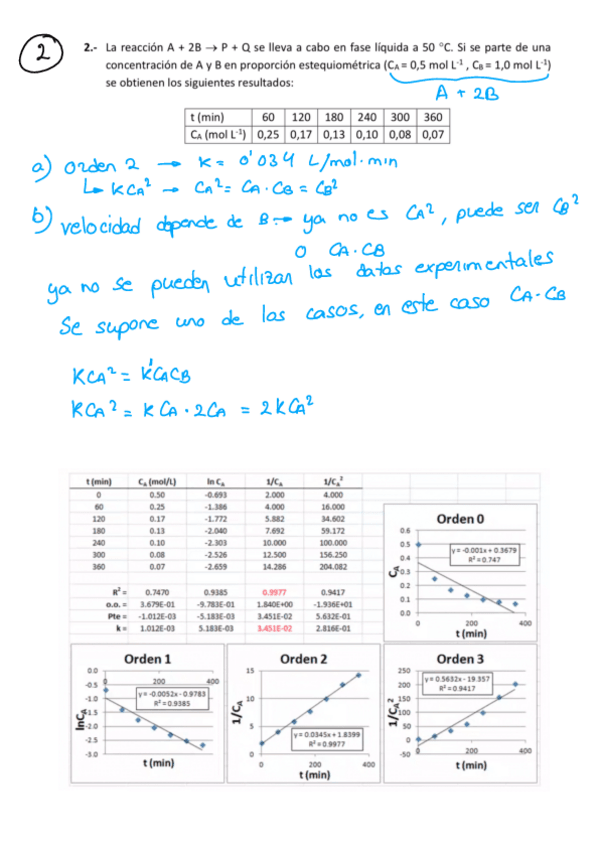 2
2.- La reacción A + 2B → P + Q se lleva a cabo en fase líquida a 50 °C. Si se parte de una
concentración de A y B en proporción estequiométrica (CA = 0,5 mol L-1 , CB = 1,0 mol L-1)
se obtienen los siguientes resultados:
A + 2B
t (min) 60 120 180 240 300 360
CA (mol L-1) 0,25 0,17 0,13 0,10 0,08 0,07
a) orden 2 → K = 0'034 L/mol·min
↳ KCA² → CA² = CA·CB = CB²
b) velocidad depende de B → ya no es CA², puede ser CB²
o CA·CB
ya no se pueden utilizar los datos experimentales
Se supone uno de los casos, en este caso CA·CB
KCA² = K'CACB
KCA² = K CA · 2CA = 2KCA²
t (min) CA (mol/L) ln CA 1/CA 1/CA²
0 0.50 -0.693 2.000 4.000
60 0.25 -1.386 4.000 16.000
120 0.17 -1.772 5.882 34.602
180 0.13 -2.040 7.692 59.172
240 0.10 -2.303 10.000 100.000
300 0.08 -2.526 12.500 156.250
360 0.07 -2.659 14.286 204.082
R² = 0.7470 0.9385 0.9977 0.9417
o.o. = 3.679E-01 -9.783E-01 1.840E+00 -1.936E+01
Pte = -1.012E-03 -5.183E-03 3.451E-02 5.632E-01
k = 1.012E-03 5.183E-03 3.451E-02 2.816E-01
Orden 0
y = -0.001x + 0.3679
R² = 0.747
CA
0.6
0.5
0.4
0.3
0.2
0.1
0.0
0 200 400
t (min)
Orden 1
0 200 400
y = -0.0052x - 0.9783
R² = 0.9385
lnCA
0.0
-0.5
-1.0
-1.5
-2.0
-2.5
-3.0
t (min)
Orden 2
1/CA
15
10
5
0
y = 0.0345x + 1.8399
R² = 0.9977
0 200 400
t (min)
Orden 3
y = 0.5632x - 19.357
R² = 0.9417
1/CA²
250
200
150
100
50
0
-50
0 200 400
t (min)